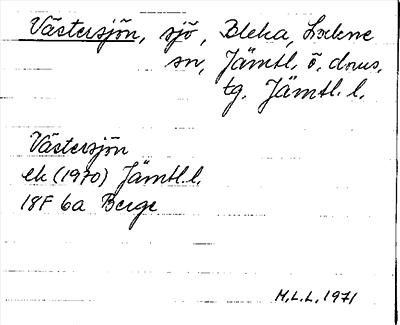 Västersjön, sjö, Bleka, Lockne
sn, Jämtl. ö. dnus.
tg. Jämtl. l.
Västersjön
ek (1970) Jämtl. l.
18F 6a Berge
M.L.L. 1971